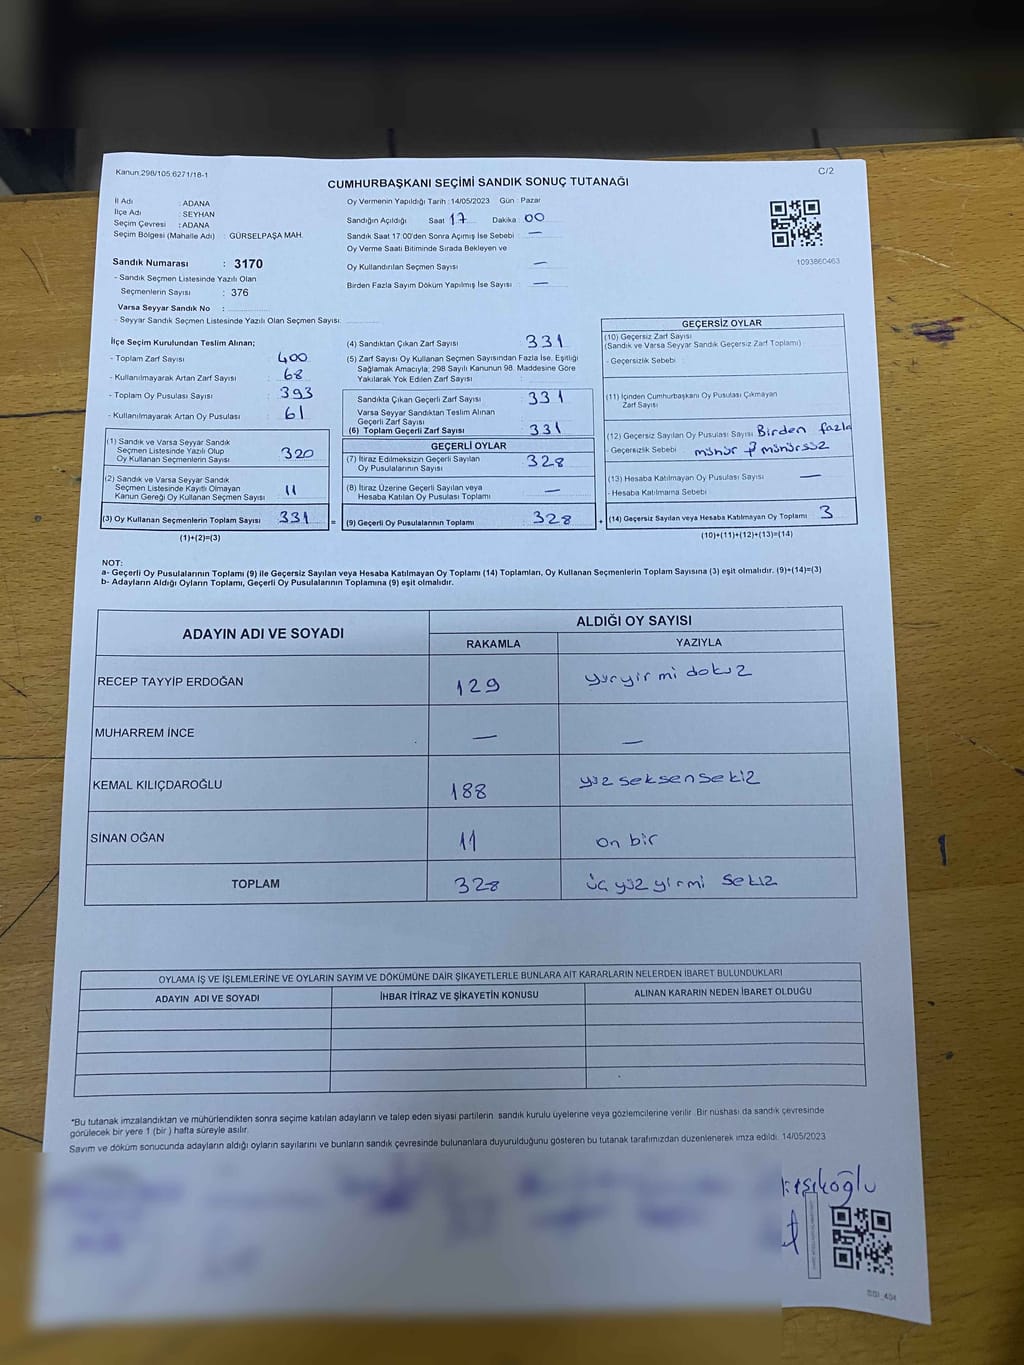 Kanun:298/105;6271/18-1
C/2
CUMHURBAŞKANI SEÇİMİ SANDIK SONUÇ TUTANAĞI
İl Adı : ADANA
İlçe Adı : SEYHAN
Seçim Çevresi : ADANA
Seçim Bölgesi (Mahalle Adı) : GÜRSELPAŞA MAH.
Sandık Numarası : 3170
- Sandık Seçmen Listesinde Yazılı Olan
Seçmenlerin Sayısı : 376
Varsa Seyyar Sandık No :
- Seyyar Sandık Seçmen Listesinde Yazılı Olan Seçmen Sayısı:
Oy Vermenin Yapıldığı Tarih :14/05/2023 Gün : Pazar
Sandığın Açıldığı Saat 17 Dakika 00
Sandık Saat 17:00'den Sonra Açımış İse Sebebi : —
Oy Verme Saati Bitiminde Sırada Bekleyen ve
Oy Kullandırılan Seçmen Sayısı —
Birden Fazla Sayım Döküm Yapılmış İse Sayısı : —
1093860463
İlçe Seçim Kurulundan Teslim Alınan;
- Toplam Zarf Sayısı : 400
- Kullanılmayarak Artan Zarf Sayısı : 68
- Toplam Oy Pusulası Sayısı : 393
- Kullanılmayarak Artan Oy Pusulası : 61
(1) Sandık ve Varsa Seyyar Sandık
Seçmen Listesinde Yazılı Olup
Oy Kullanan Seçmenlerin Sayısı : 320
(2) Sandık ve Varsa Seyyar Sandık
Seçmen Listesinde Kayıtlı Olmayan
Kanun Gereği Oy Kullanan Seçmen Sayısı : 11
(3) Oy Kullanan Seçmenlerin Toplam Sayısı : 331 =
(1)+(2)=(3)
(4) Sandıktan Çıkan Zarf Sayısı : 331
(5) Zarf Sayısı Oy Kullanan Seçmen Sayısından Fazla İse, Eşitliği
Sağlamak Amacıyla; 298 Sayılı Kanunun 98. Maddesine Göre
Yakılarak Yok Edilen Zarf Sayısı :
Sandıkta Çıkan Geçerli Zarf Sayısı : 331
Varsa Seyyar Sandıktan Teslim Alınan
Geçerli Zarf Sayısı :
(6) Toplam Geçerli Zarf Sayısı : 331
GEÇERLİ OYLAR
(7) İtiraz Edilmeksizin Geçerli Sayılan
Oy Pusulalarının Sayısı : 328
(8) İtiraz Üzerine Geçerli Sayılan veya
Hesaba Katılan Oy Pusulası Toplamı : —
(9) Geçerli Oy Pusulalarının Toplamı : 328 +
GEÇERSİZ OYLAR
(10) Geçersiz Zarf Sayısı
(Sandık ve Varsa Seyyar Sandık Geçersiz Zarf Toplamı) :
- Geçersizlik Sebebi :
(11) İçinden Cumhurbaşkanı Oy Pusulası Çıkmayan
Zarf Sayısı
(12) Geçersiz Sayılan Oy Pusulası Sayısı Birden fazla
- Geçersizlik Sebebi : mühür mühürsüz
(13) Hesaba Katılmayan Oy Pusulası Sayısı —
- Hesaba Katılmama Sebebi
(14) Geçersiz Sayılan veya Hesaba Katılmayan Oy Toplamı : 3
(10)+(11)+(12)+(13)=(14)
NOT:
a- Geçerli Oy Pusulalarının Toplamı (9) ile Geçersiz Sayılan veya Hesaba Katılmayan Oy Toplamı (14) Toplamları, Oy Kullanan Seçmenlerin Toplam Sayısına (3) eşit olmalıdır. (9)+(14)=(3)
b- Adayların Aldığı Oyların Toplamı, Geçerli Oy Pusulalarının Toplamına (9) eşit olmalıdır.
ADAYIN ADI VE SOYADI
ALDIĞI OY SAYISI
RAKAMLA YAZIYLA
RECEP TAYYİP ERDOĞAN 129 yüzyirmi dokuz
MUHARREM İNCE — —
KEMAL KILIÇDAROĞLU 188 yüz seksensekiz
SİNAN OĞAN 11 on bir
TOPLAM 328 üç yüz yirmi sekiz
OYLAMA İŞ VE İŞLEMLERİNE VE OYLARIN SAYIM VE DÖKÜMÜNE DAİR ŞİKAYETLERLE BUNLARA AİT KARARLARIN NELERDEN İBARET BULUNDUKLARI
ADAYIN ADI VE SOYADI İHBAR İTİRAZ VE ŞİKAYETİN KONUSU ALINAN KARARIN NEDEN İBARET OLDUĞU
*Bu tutanak imzalandıktan ve mühürlendikten sonra seçime katılan adayların ve talep eden siyasi partilerin sandık kurulu üyelerine veya gözlemcilerine verilir. Bir nüshası da sandık çevresinde
görülecek bir yere 1 (bir) hafta süreyle asılır.
Sayım ve döküm sonucunda adayların aldığı oyların sayılarını ve bunların sandık çevresinde bulunanlara duyurulduğunu gösteren bu tutanak tarafımızdan düzenlenerek imza edildi. 14/05/2023